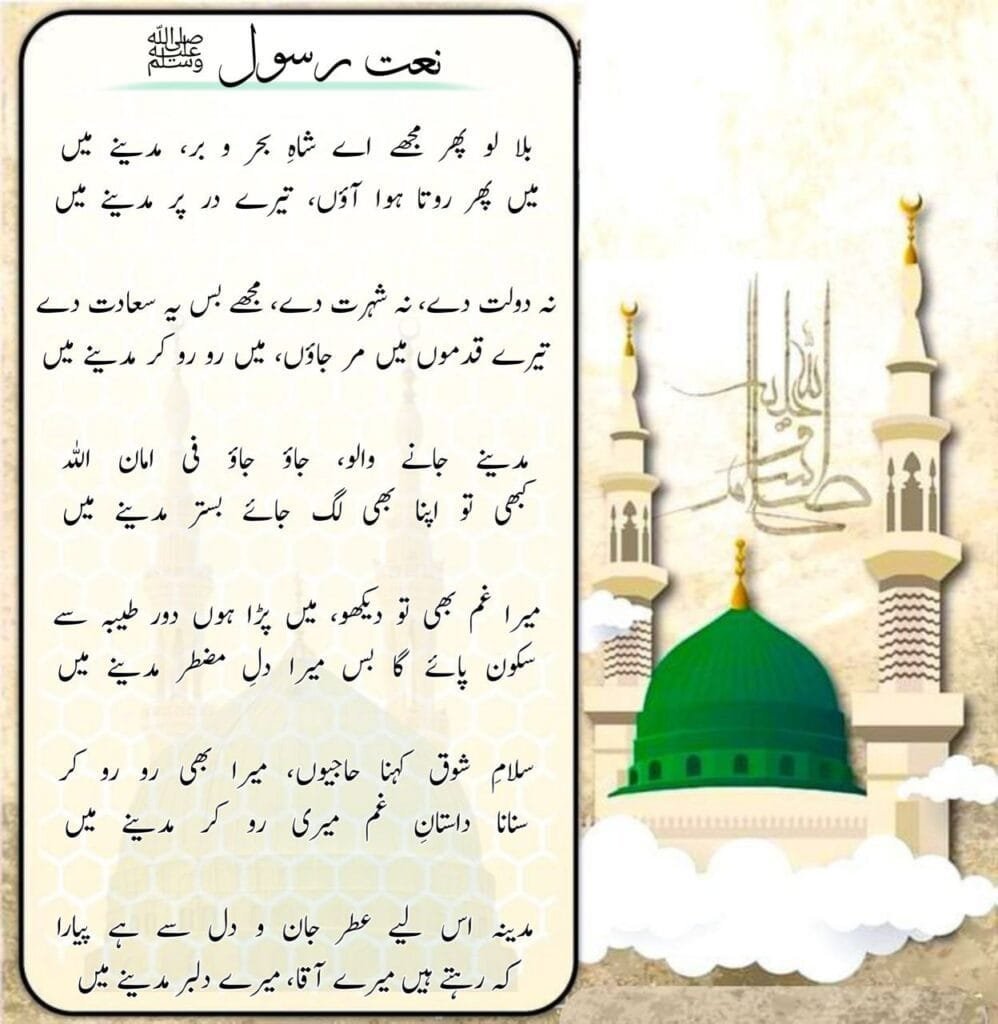 نعت رسول ﷺ
بلا لو پھر مجھے اے شاہِ بحر و بر، مدینے میں
میں پھر روتا ہوا آؤں، تیرے در پر مدینے میں
نہ دولت دے، نہ شہرت دے، مجھے بس یہ سعادت دے
تیرے قدموں میں مر جاؤں، میں رو رو کر مدینے میں
مدینے جانے والو، جاؤ جاؤ فی امان اللہ
کبھی تو اپنا بھی لگ جائے بستر مدینے میں
میرا غم بھی تو دیکھو، میں پڑا ہوں دور طیبہ سے
سکون پائے گا بس میرا دلِ مضطر مدینے میں
سلامِ شوق کہنا حاجیوں، میرا بھی رو رو کر
سنانا داستانِ غم میری رو کر مدینے میں
مدینہ اس لیے عطر جان و دل سے ہے پیارا
کہ رہتے ہیں میرے آقا، میرے دلبر مدینے میں
صلى الله عليه وسلم